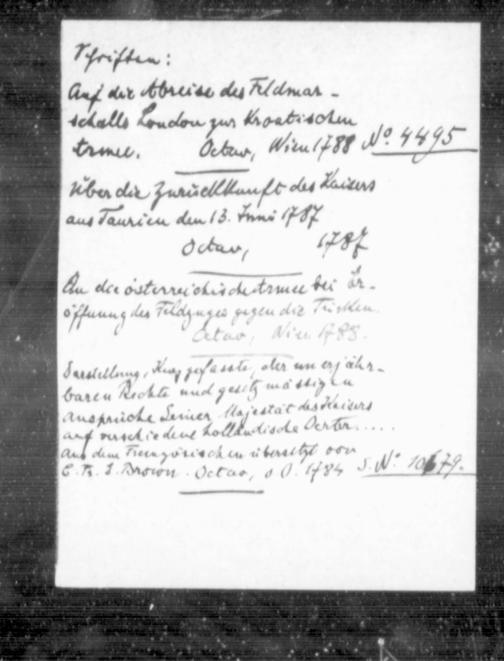 Schriften:
Auf die Abreise des Feldmar-
schalls Loudon zur Kroatischen
Armee. Octav, Wien 1788 No. 4495
Über die Zurückkunft des Kaisers
aus Taurien den 13. Juni 1787
Octav, 1787
An die österreichische Armee bei Er-
öffnung des Feldzuges gegen die Türken.
Octav, Wien 1788.
Darstellung, Kurzgefasste, der unverjähr-
baren Rechte und gesetzmässigen
Ansprüche Seiner Majestät des Kaisers
auf verschiedene holländische Oerter.....
Aus dem Französischen übersetzt von
Octav, o O. 1784 S. No. 10679.